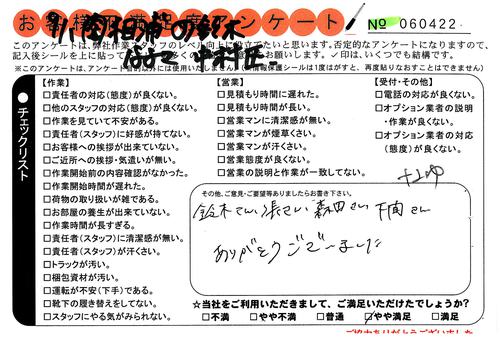 お客様満足度アンケート
No 060422
このアンケートは、弊社作業スタッフのレベル向上に役立てたいと思います。否定的なアンケートになりますので、
記入後シールを上に貼って
お願いします。✓印は、いくつでも結構です。
チェックリスト
【作業】
□責任者の対応(態度)が良くない。
□他のスタッフの対応(態度)が良くない。
□作業を見ていて不安がある。
□責任者(スタッフ)に好感が持てない。
□お客様への挨拶が出来ていない。
□ご近所への挨拶・気遣いが無い。
□作業開始前の内容確認がなかった。
□作業開始時間が遅れた。
□荷物の取り扱いが雑である。
□お部屋の養生が出来ていない。
□作業時間が長すぎる。
□責任者(スタッフ)に清潔感が無い。
□責任者(スタッフ)が汗くさい。
□トラックが汚い。
□梱包資材が汚い。
□運転が不安(下手)である。
□靴下の履き替えをしてない。
□スタッフにやる気がみられない。
【営業】
□見積もり時間に遅れた。
□見積もり時間が長い。
□営業マンに清潔感が無い。
□営業マンが煙草くさい。
□営業マンが汗くさい。
□営業態度が良くない。
□営業の説明と作業が一致してない。
【受付・その他】
□電話の対応が良くない。
□オプション業者の説明
・作業が良くない。
□オプション業者の対応
(態度)が良くない。
その他、ご意見・ご要望等ありましたらお書き下さい。
鈴木さん 張さい 森田さい 下関さん
ありがとうございました
☆当社をご利用いただきまして、ご満足いただけたでしょうか?
□不満 □やや不満 □普通 ☑やや満足 □満足
ご協力ありがとうございました